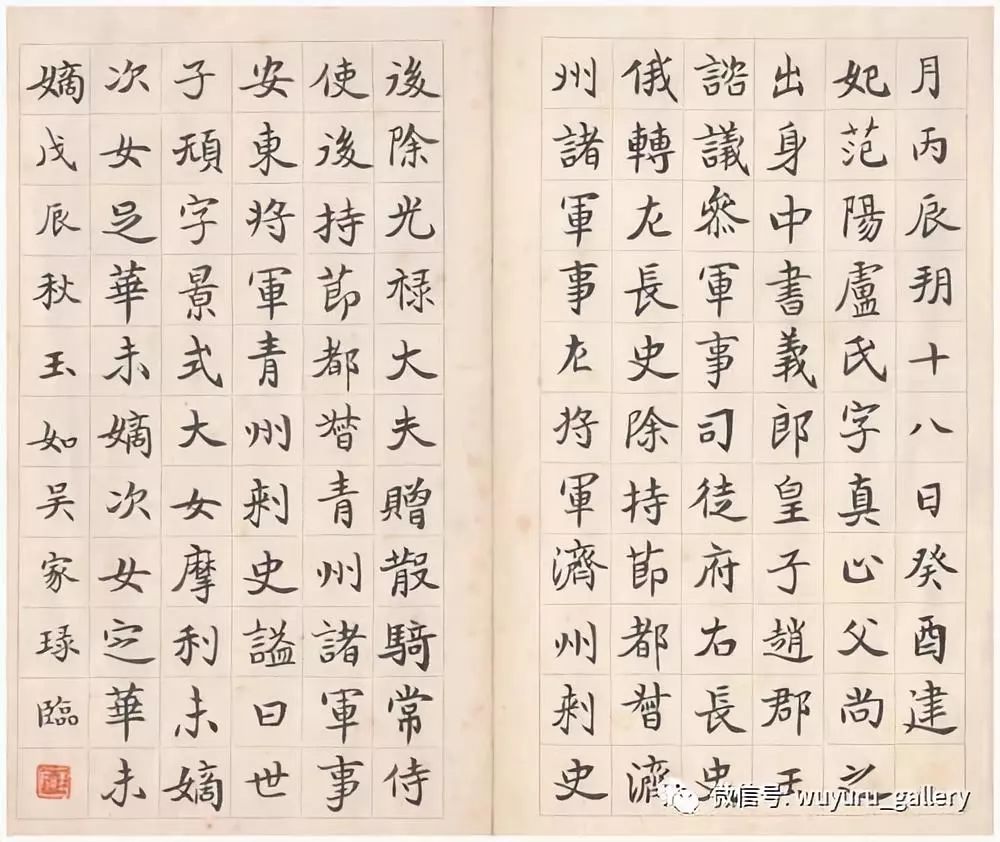 月丙辰朔十八日癸酉建
妃范陽盧氏字真心父尚之
出身中書義郎皇子趙郡王
諮議參軍事司徒府右長史
俄轉左長史除持節都督濟
州諸軍事左將軍濟州刺史
後除光禄大夫贈散騎常侍
使後持節都督青州諸軍事
安東將軍青州刺史謚曰世
子頊字景式大女摩利未嫡
次女足華未嫡次女定華未
嫡戊辰秋玉如吴家琭臨
微信号: wuyuru_gallery